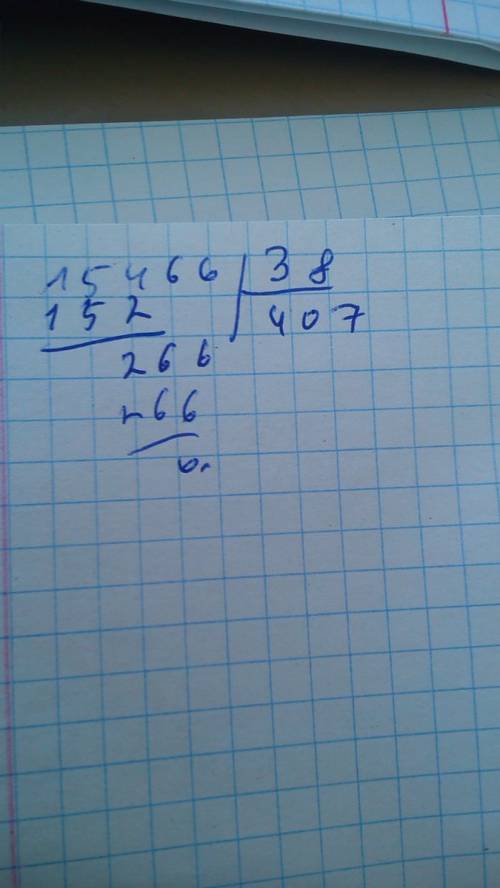 15466 38
152 407
266
266
0.